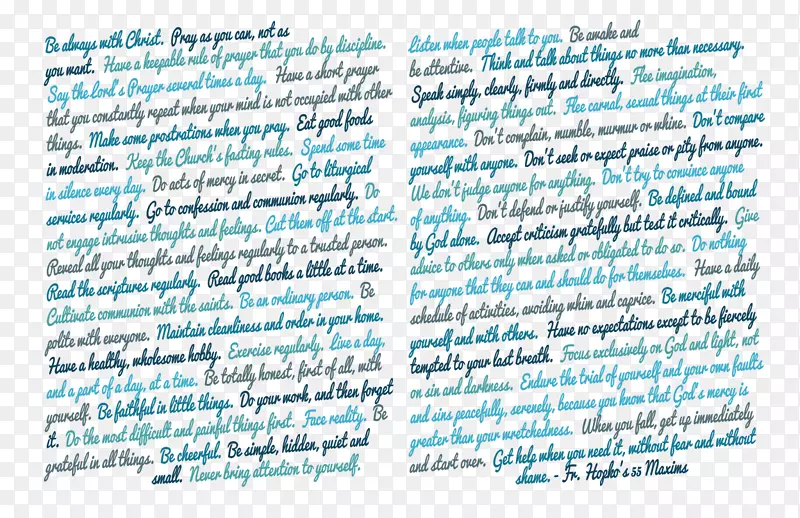 Be always with Christ. Pray as you can, not as
you want. Have a keepable rule of prayer that you do by discipline.
Say the Lord's Prayer several times a day. Have a short prayer
that you constantly repeat when your mind is not occupied with other
things. Make some prostrations when you pray. Eat good foods
in moderation. Keep the Church's fasting rules. Spend some time
in silence every day. Do acts of mercy in secret. Go to liturgical
services regularly. Go to confession and communion regularly. Do
not engage intrusive thoughts and feelings. Cut them off at the start.
Reveal all your thoughts and feelings regularly to a trusted person.
Read the scriptures regularly. Read good books a little at a time.
Cultivate communion with the saints. Be an ordinary person. Be
polite with everyone. Maintain cleanliness and order in your home.
Have a healthy, wholesome hobby. Exercise regularly. Live a day,
and a part of a day, at a time. Be totally honest, first of all, with
yourself. Be faithful in little things. Do your work, and then forget
it. Do the most difficult and painful things first. Face reality. Be
grateful in all things. Be cheerful. Be simple, hidden, quiet and
small. Never bring attention to yourself.
Listen when people talk to you. Be awake and
be attentive. Think and talk about things no more than necessary.
Speak simply, clearly, firmly and directly. Flee imagination,
analysis, figuring things out. Flee carnal, sexual things at their first
appearance. Don't complain, mumble, murmur or whine. Don't compare
yourself with anyone. Don't seek or expect praise or pity from anyone.
We don't judge anyone for anything. Don't try to convince anyone
of anything. Don't defend or justify yourself. Be defined and bound
by God alone. Accept criticism gratefully but test it critically. Give
advice to others only when asked or obligated to do so. Do nothing
for anyone that they can and should do for themselves. Have a daily
schedule of activities, avoiding whim and caprice. Be merciful with
yourself and with others. Have no expectations except to be fiercely
tempted to your last breath. Focus exclusively on God and light, not
on sin and darkness. Endure the trial of yourself and your own faults
and sins peacefully, serenely, because you know that God's mercy is
greater than your wretchedness. When you fall, get up immediately
and start over. Get help when you need it, without fear and without
shame. - Fr. Hopko's 55 Maxims